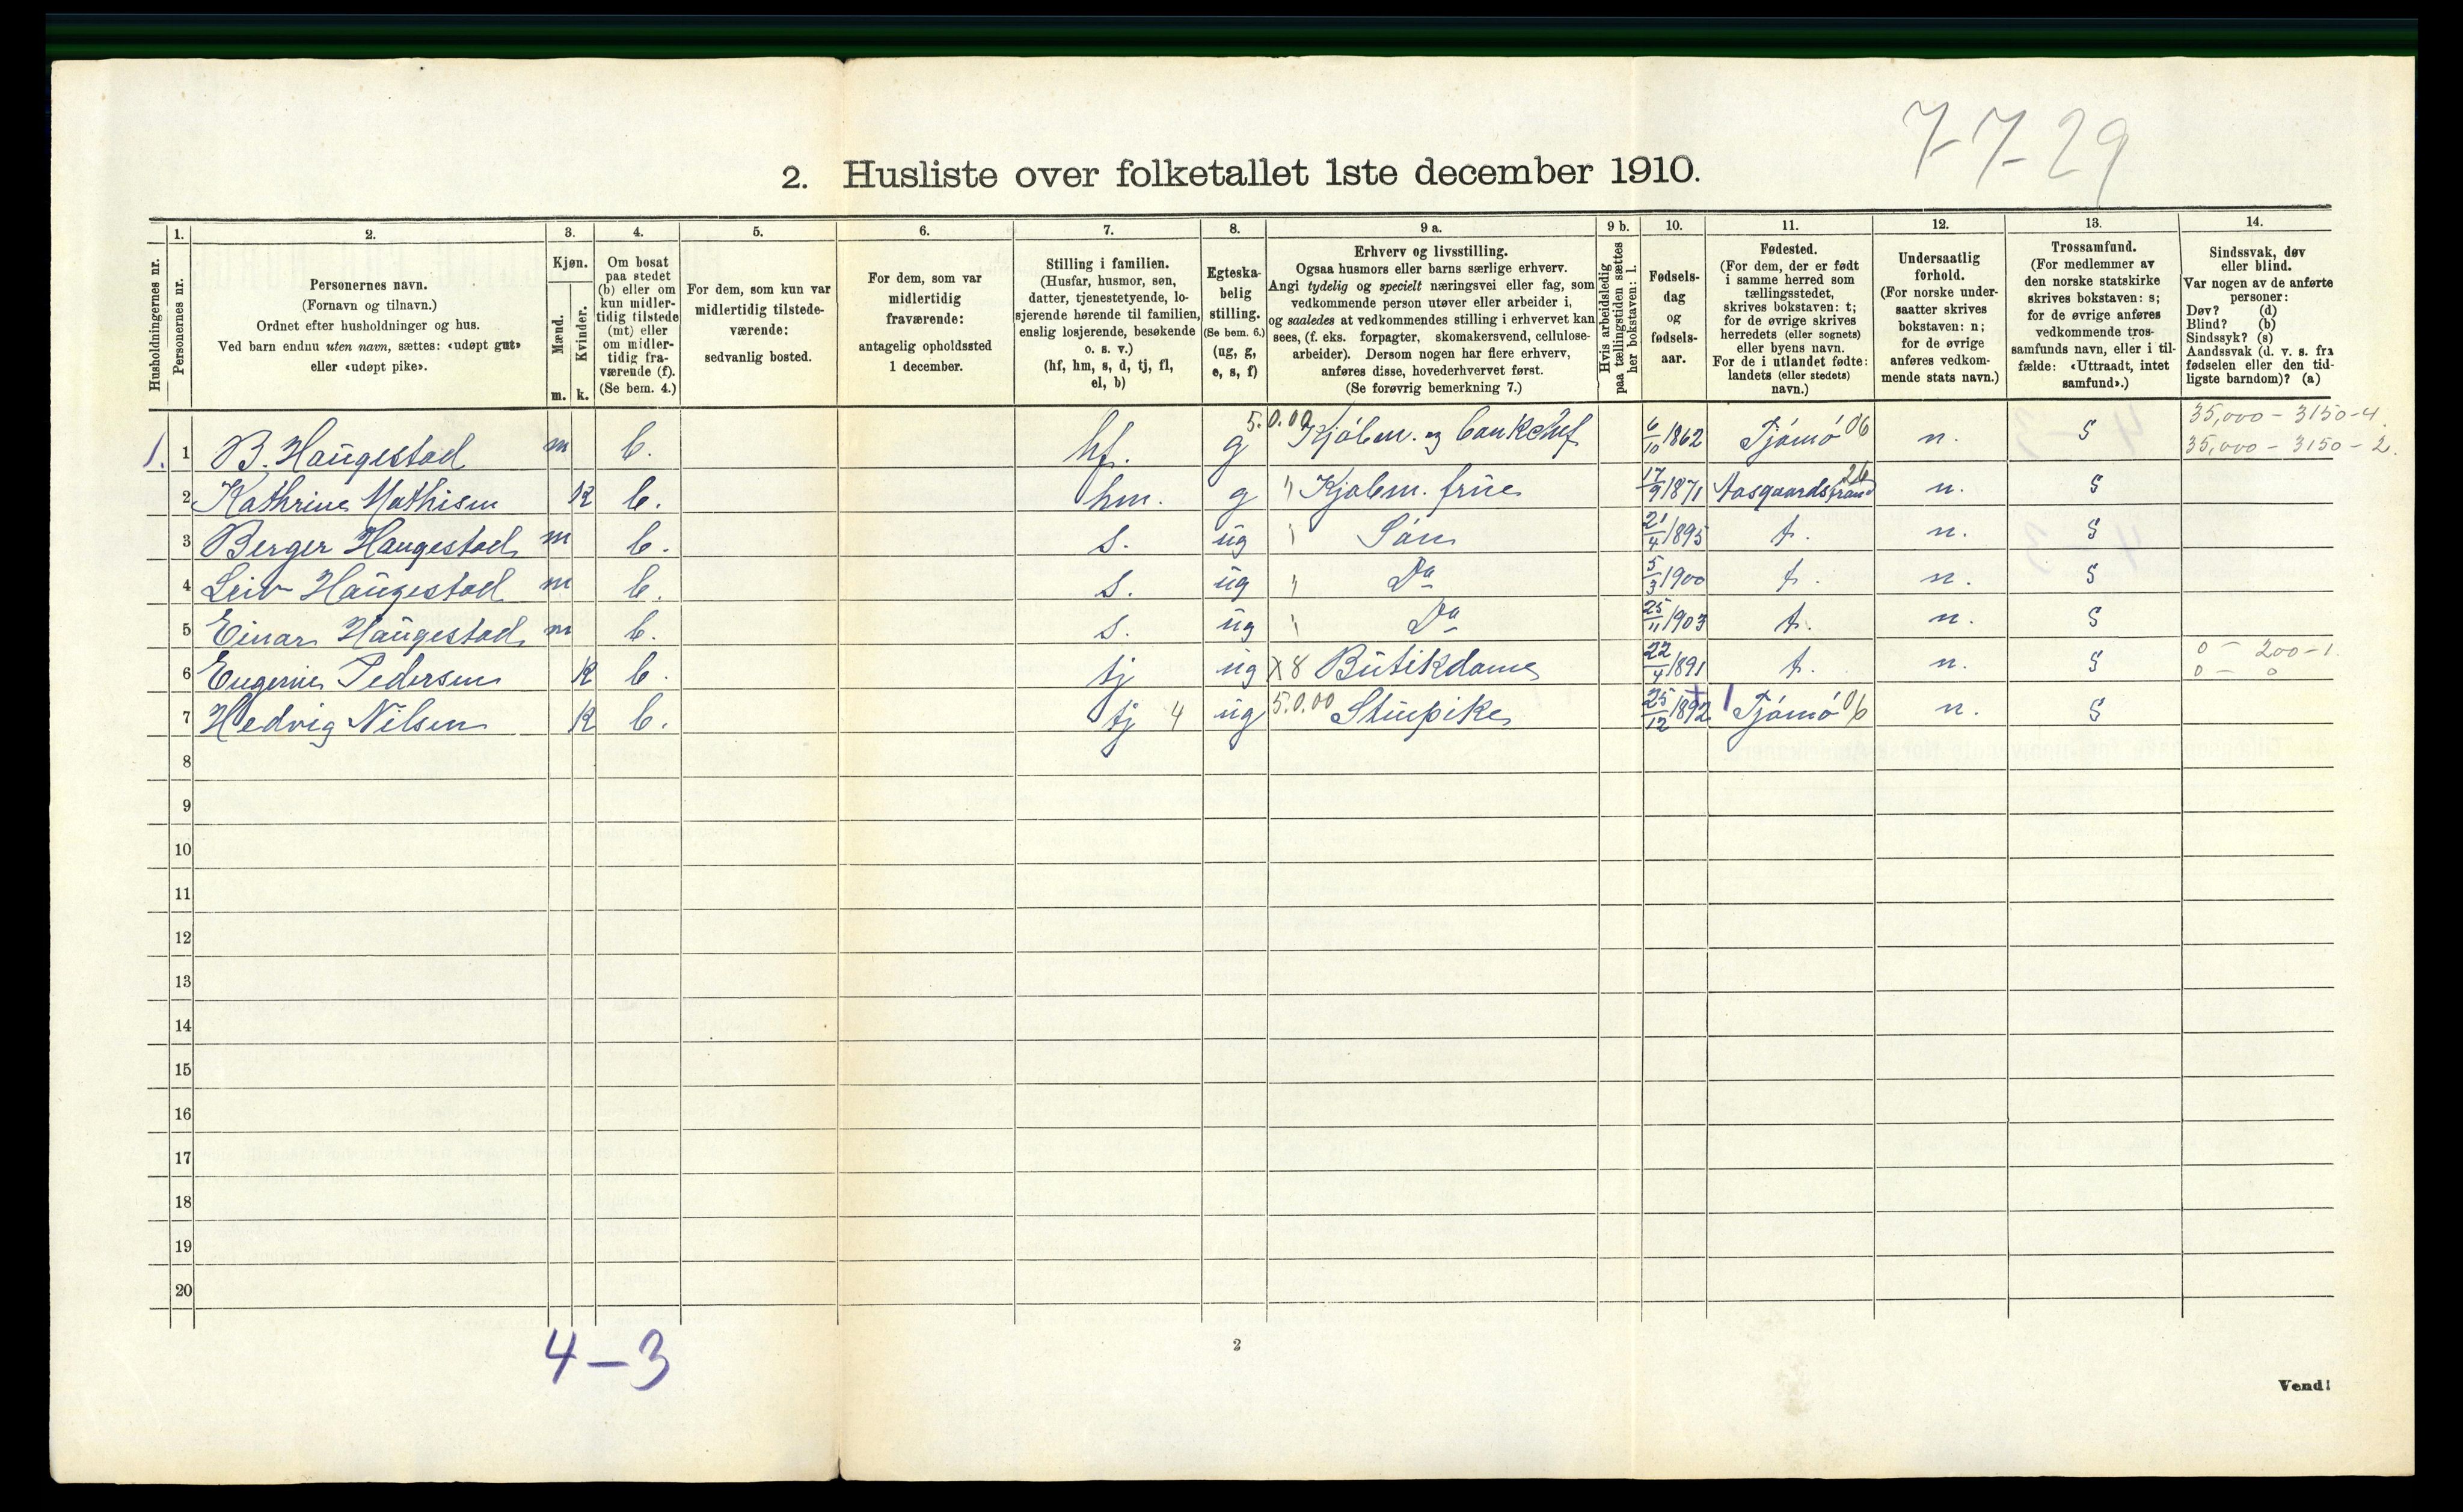 7-7-29
2. Husliste over folketallet 1ste december 1910.
Husholdningernes nr.
1.
Personernes nr.
2.
Personernes navn.
(Fornavn og tilnavn.)
Ordnet efter husholdninger og hus.
Ved barn endnu uten navn, sættes: «udøpt gut»
eller «udøpt pike».
3.
Kjøn.
Mænd.
Kvinder.
m. k.
4.
Om bosat
paa stedet
(b) eller om
kun midler-
tidig tilstede
(mt) eller
om midler-
tidig fra-
værende (f).
(Se bem. 4.)
5.
For dem, som kun var
midlertidig tilstede-
værende:
sedvanlig bosted.
6.
For dem, som var
midlertidig
fraværende:
antagelig opholdssted
1 december.
7.
Stilling i familien.
(Husfar, husmor, søn,
datter, tjenestetyende, lo-
sjerende hørende til familien,
enslig losjerende, besøkende
o. s. v.)
(hf, hm, s, d, tj, fl,
el, b)
8.
Egteska-
belig
stilling.
(Se bem. 6.)
(ug, g,
e, s, f)
9 a.
Erhverv og livsstilling.
Ogsaa husmors eller barns særlige erhverv.
Angi tydelig og specielt næringsvei eller fag, som
vedkommende person utøver eller arbeider i,
og saaledes at vedkommendes stilling i erhvervet kan
sees, (f. eks. forpagter, skomakersvend, cellulose-
arbeider). Dersom nogen har flere erhverv,
anføres disse, hovederhvervet først.
(Se forøvrig bemerkning 7.)
9 b.
Hvis arbeidsledig
paa tællingstiden sættes
her bokstaven: l.
10.
Fødsels-
dag
og
fødsels-
aar.
11.
Fødested.
(For dem, der er født
i samme herred som
tællingsstedet,
skrives bokstaven: t;
for de øvrige skrives
herredets (eller sognets)
eller byens navn.
For de i utlandet fødte:
landets (eller stedets)
navn.)
12.
Undersaatlig
forhold.
(For norske under-
saatter skrives
bokstaven: n;
for de øvrige
anføres vedkom-
mende stats navn.)
13.
Trossamfund.
(For medlemmer av
den norske statskirke
skrives bokstaven: s;
for de øvrige anføres
vedkommende tros-
samfunds navn, eller i til-
fælde: «Uttraadt, intet
samfund».)
14.
Sindssvak, døv
eller blind.
Var nogen av de anførte
personer:
Døv? (d)
Blind? (b)
Sindssyk? (s)
Aandssvak (d. v. s. fra
fødselen eller den tid-
ligste barndom)? (a)
1. 1 B. Haugestad m b. hf. g 5.0.00 Kjøbm. og bankchef 6/10 1862 Tjømø 06 n. S 35,000 - 3150-4
35,000 - 3150-2.
2 Kathrine Mathisen K b. hm. g " Kjøbm. frue 17/9 1871 Aasgaardstrand 26 n. S
3 Berger Haugestad m b. s. ug " Søn 21/4 1895 t. n. S
4 Leiv Haugestad m b. s. ug " Do 5/3 1900 t. n. S
5 Einar Haugestad m b. s. ug " Do 25/11 1903 t. n. S
6 Eugenie Pedersen K b. tj ug X8 Butikdame 22/4 1891 t. n. S 0 - 200-1
0 - 0
7 Hedvig Nilsen K b. tj 4 ug 5.0.00 Stuepike 25/12 1892 Tjømø 06 n. S
8
9
10
11
12
13
14
15
16
17
18
19
20
4-3
2
Vend!